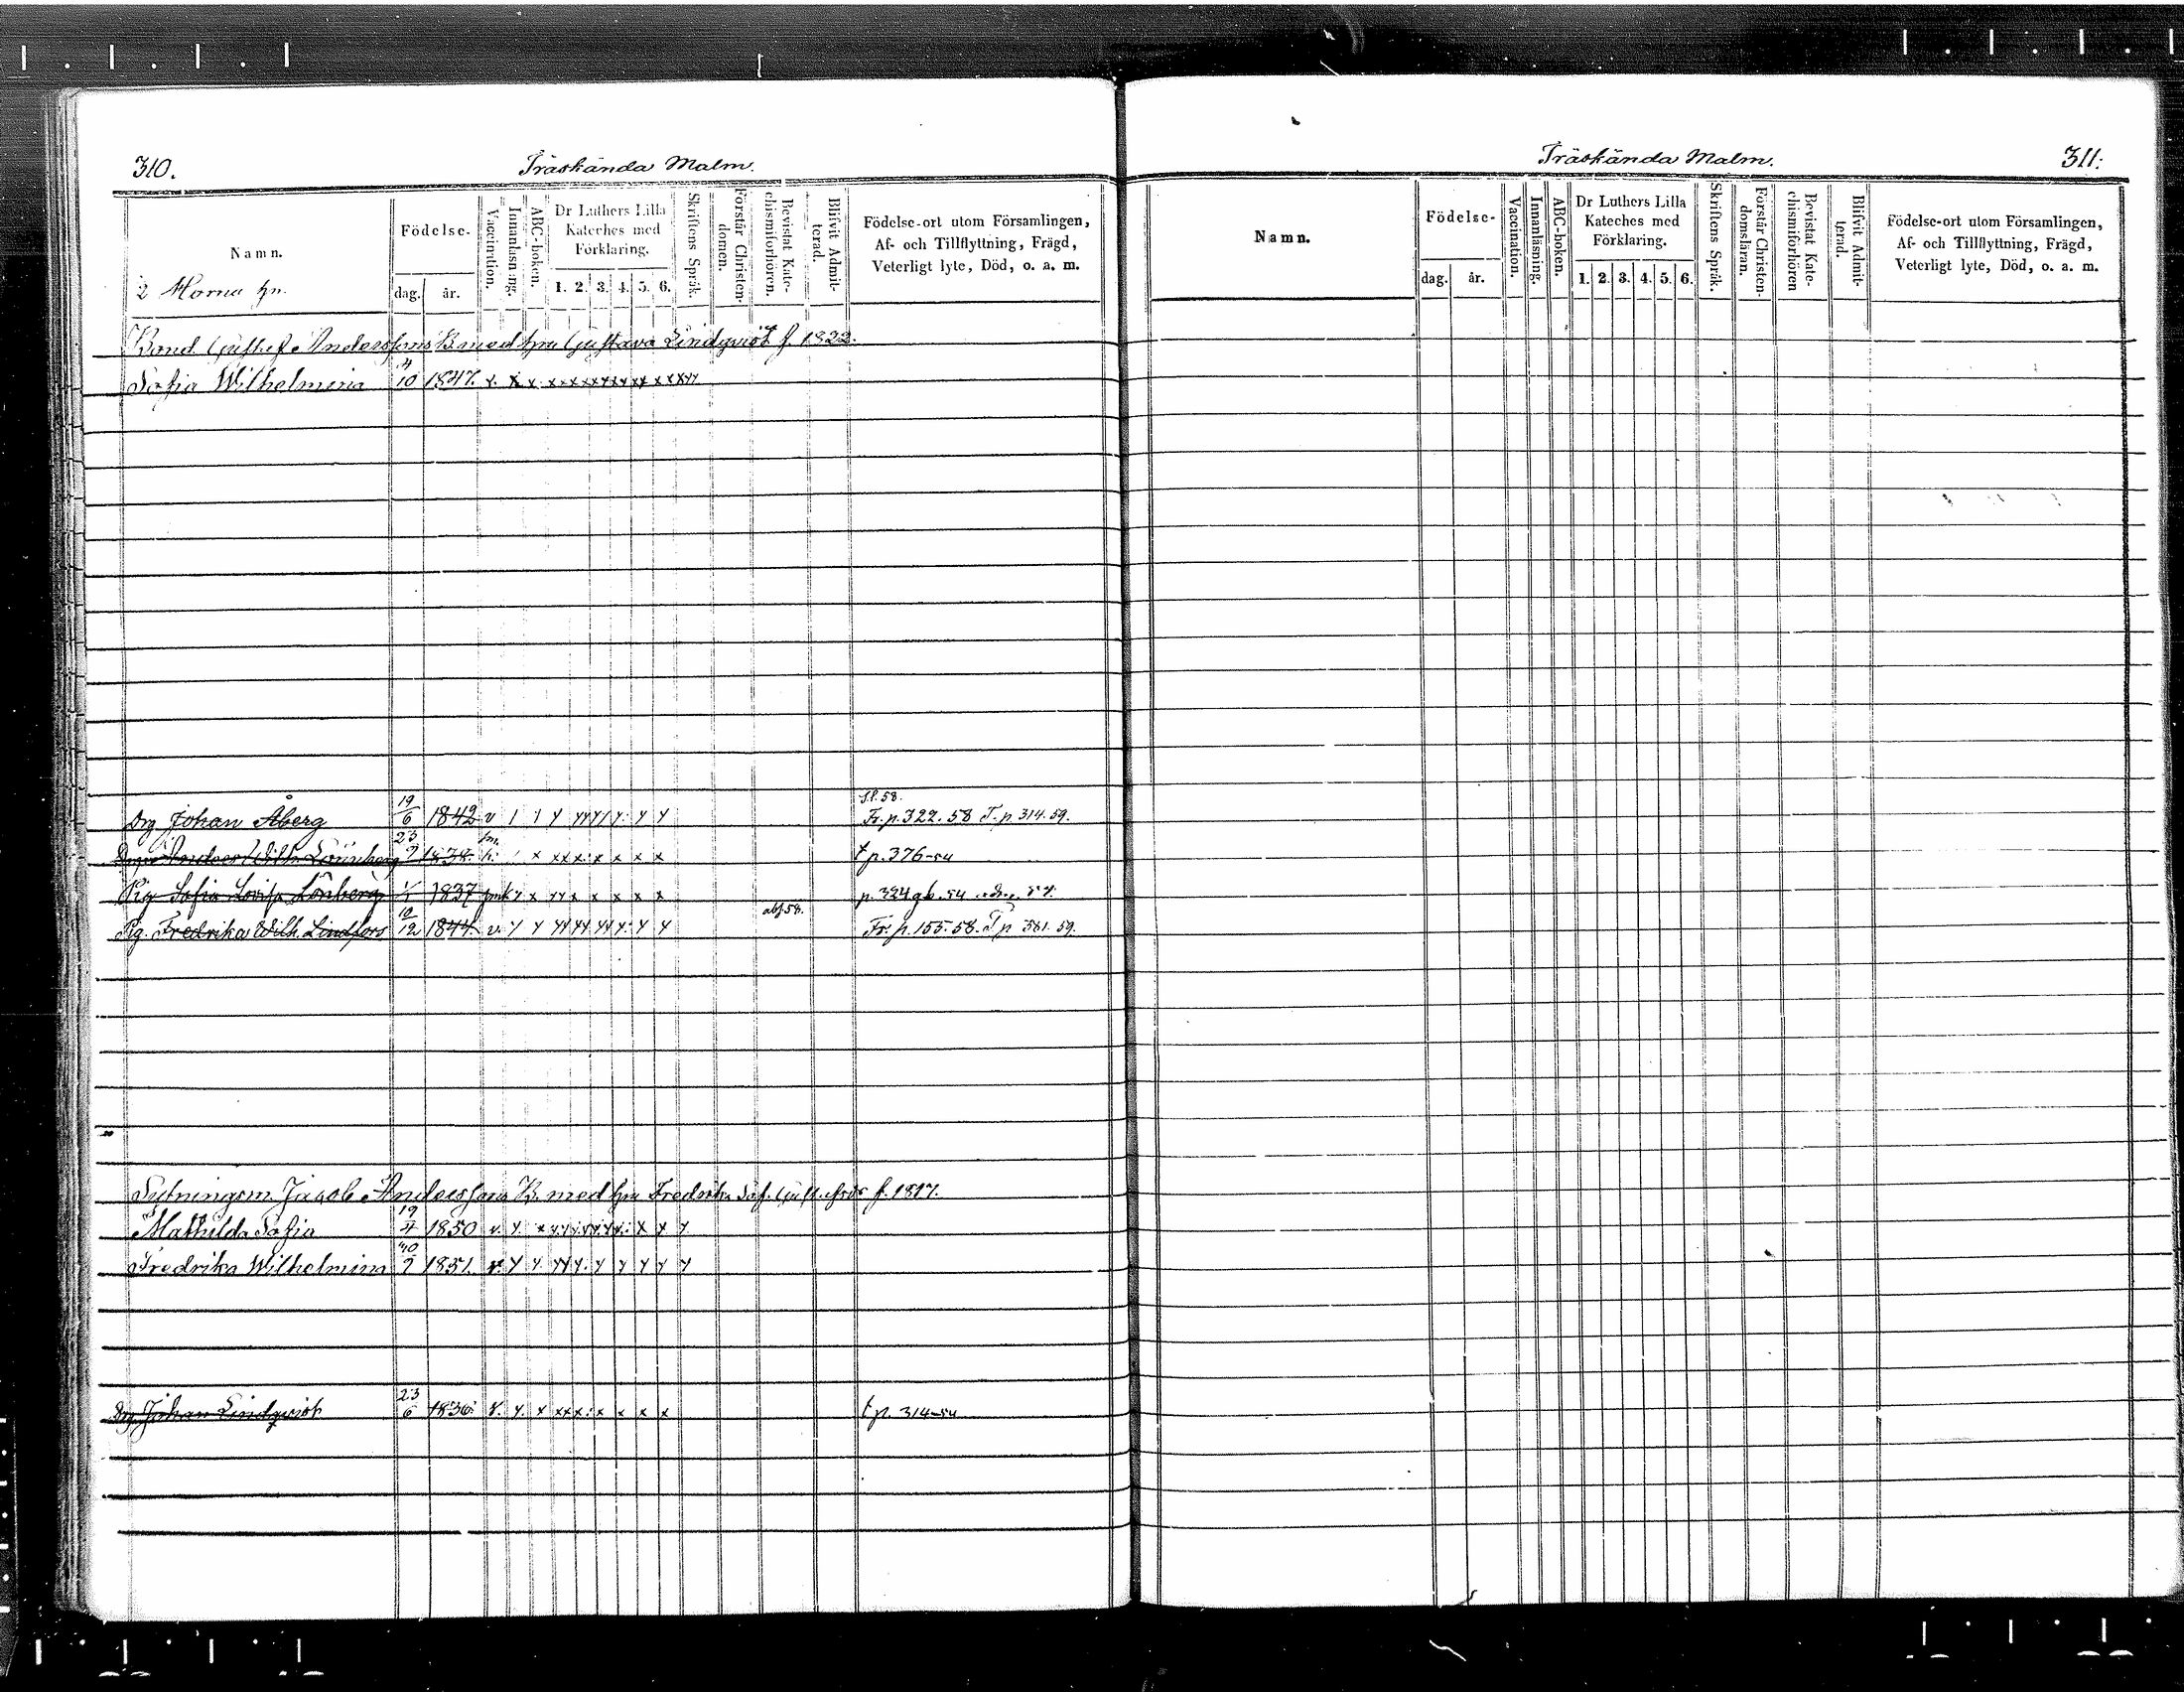 310.
Träskända Malm.
Namn.
2 Morna hn.
Födelse-
dag. år.
Vaccination.
Innanläsning.
ABC-boken.
Dr Luthers Lilla
Kateches med
Förklaring.
1. 2. 3. 4. 5. 6.
Skriftens Språk.
Förstår Christen-
domen.
Bevistat Kate-
chismiförhören.
Blifvit Admit-
terad.
Födelse-ort utom Församlingen,
Af- och Tillflyttning, Frägd,
Veterligt lyte, Död, o. a. m.
Bond. Gustaf Anderssons B. med hu Gustava Lindqvist f. 1822.
Sofia Wilhelmina 10 1847. v. x x xxxxxxxxx xxxxx
Drg Johan Åberg 19/6 1842 v Fr. p. 322. 58 T. p 314. 59.
23/9 1838. t p. 376-54
Pig Sofia Lovisa Lönberg 1837 p. 324 54
Pig. Fredrika Wilh. Lindfors 10/12 1844 v. abs 58. Fr. p. 155. 58. T p 381. 59.
Sytningsm. Jacob Anderssons B. med hu Fredrika Sof. f. 1817.
Mathilda Sofia 19/4 1850 v.
Fredrika Wilhelmina 1851. v.
Drg Johan Lindqvist 23/6 1836. v. t p. 314-54
Träskända Malm.
311.
Namn.
Födelse-
dag. år.
Vaccination.
Innanläsning.
ABC-boken.
Dr Luthers Lilla
Kateches med
Förklaring.
1. 2. 3. 4. 5. 6.
Skriftens Språk.
Förstår Christen-
domsläran.
Bevistat Kate-
chismiförhören
Blifvit Admit-
terad.
Födelse-ort utom Församlingen,
Af- och Tillflyttning, Frägd,
Veterligt lyte, Död, o. a. m.